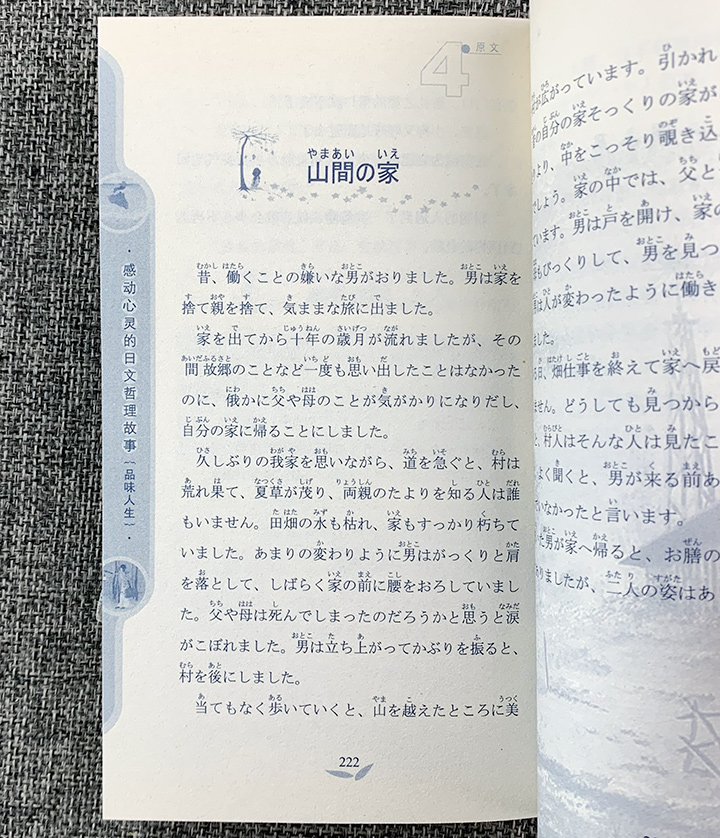 4
原文
やまあい いえ
山間の家
昔、働くことの嫌いな男がおりました。男は家を
捨て親を捨て、気ままな旅に出ました。
家を出てから十年の歳月が流れましたが、その
間故郷のことなど一度も思い出したことはなかった
のに、俄かに父や母のことが気がかりになりだし、
自分の家に帰ることにしました。
久しぶりの我家を思いながら、道を急ぐと、村は
荒れ果て、夏草が茂り、両親のたよりを知る人は誰
もいません。田畑の水も枯れ、家もすっかり朽ちて
いました。あまりの変わりように男はがっくりと肩
を落として、しばらく家の前に腰をおろしていまし
た。父や母は死んでしまったのだろうかと思うと涙
がこぼれました。男は立ち上がってかぶりを振ると、
村を後にしました。
当てもなく歩いていくと、山を越えたところに美
222
·感动心灵的日文哲理故事（品味人生）·
広がっています。引かれ
の自分の家そっくりの家が
より、中をこっそり覗き込
でしょう。家の中では、父と
ています。男は戸を開け、家の
もびっくりして、男を見つ
は人が変わったように働き
ました。
日、畑仕事を終えて家へ戻
ません。どうしても見つから
と、村人はそんな人は見たこ
よく聞くと、男が来る前あ
ていなかったと言います。
った男が家へ帰ると、お膳の
ありましたが、二人の姿はあ